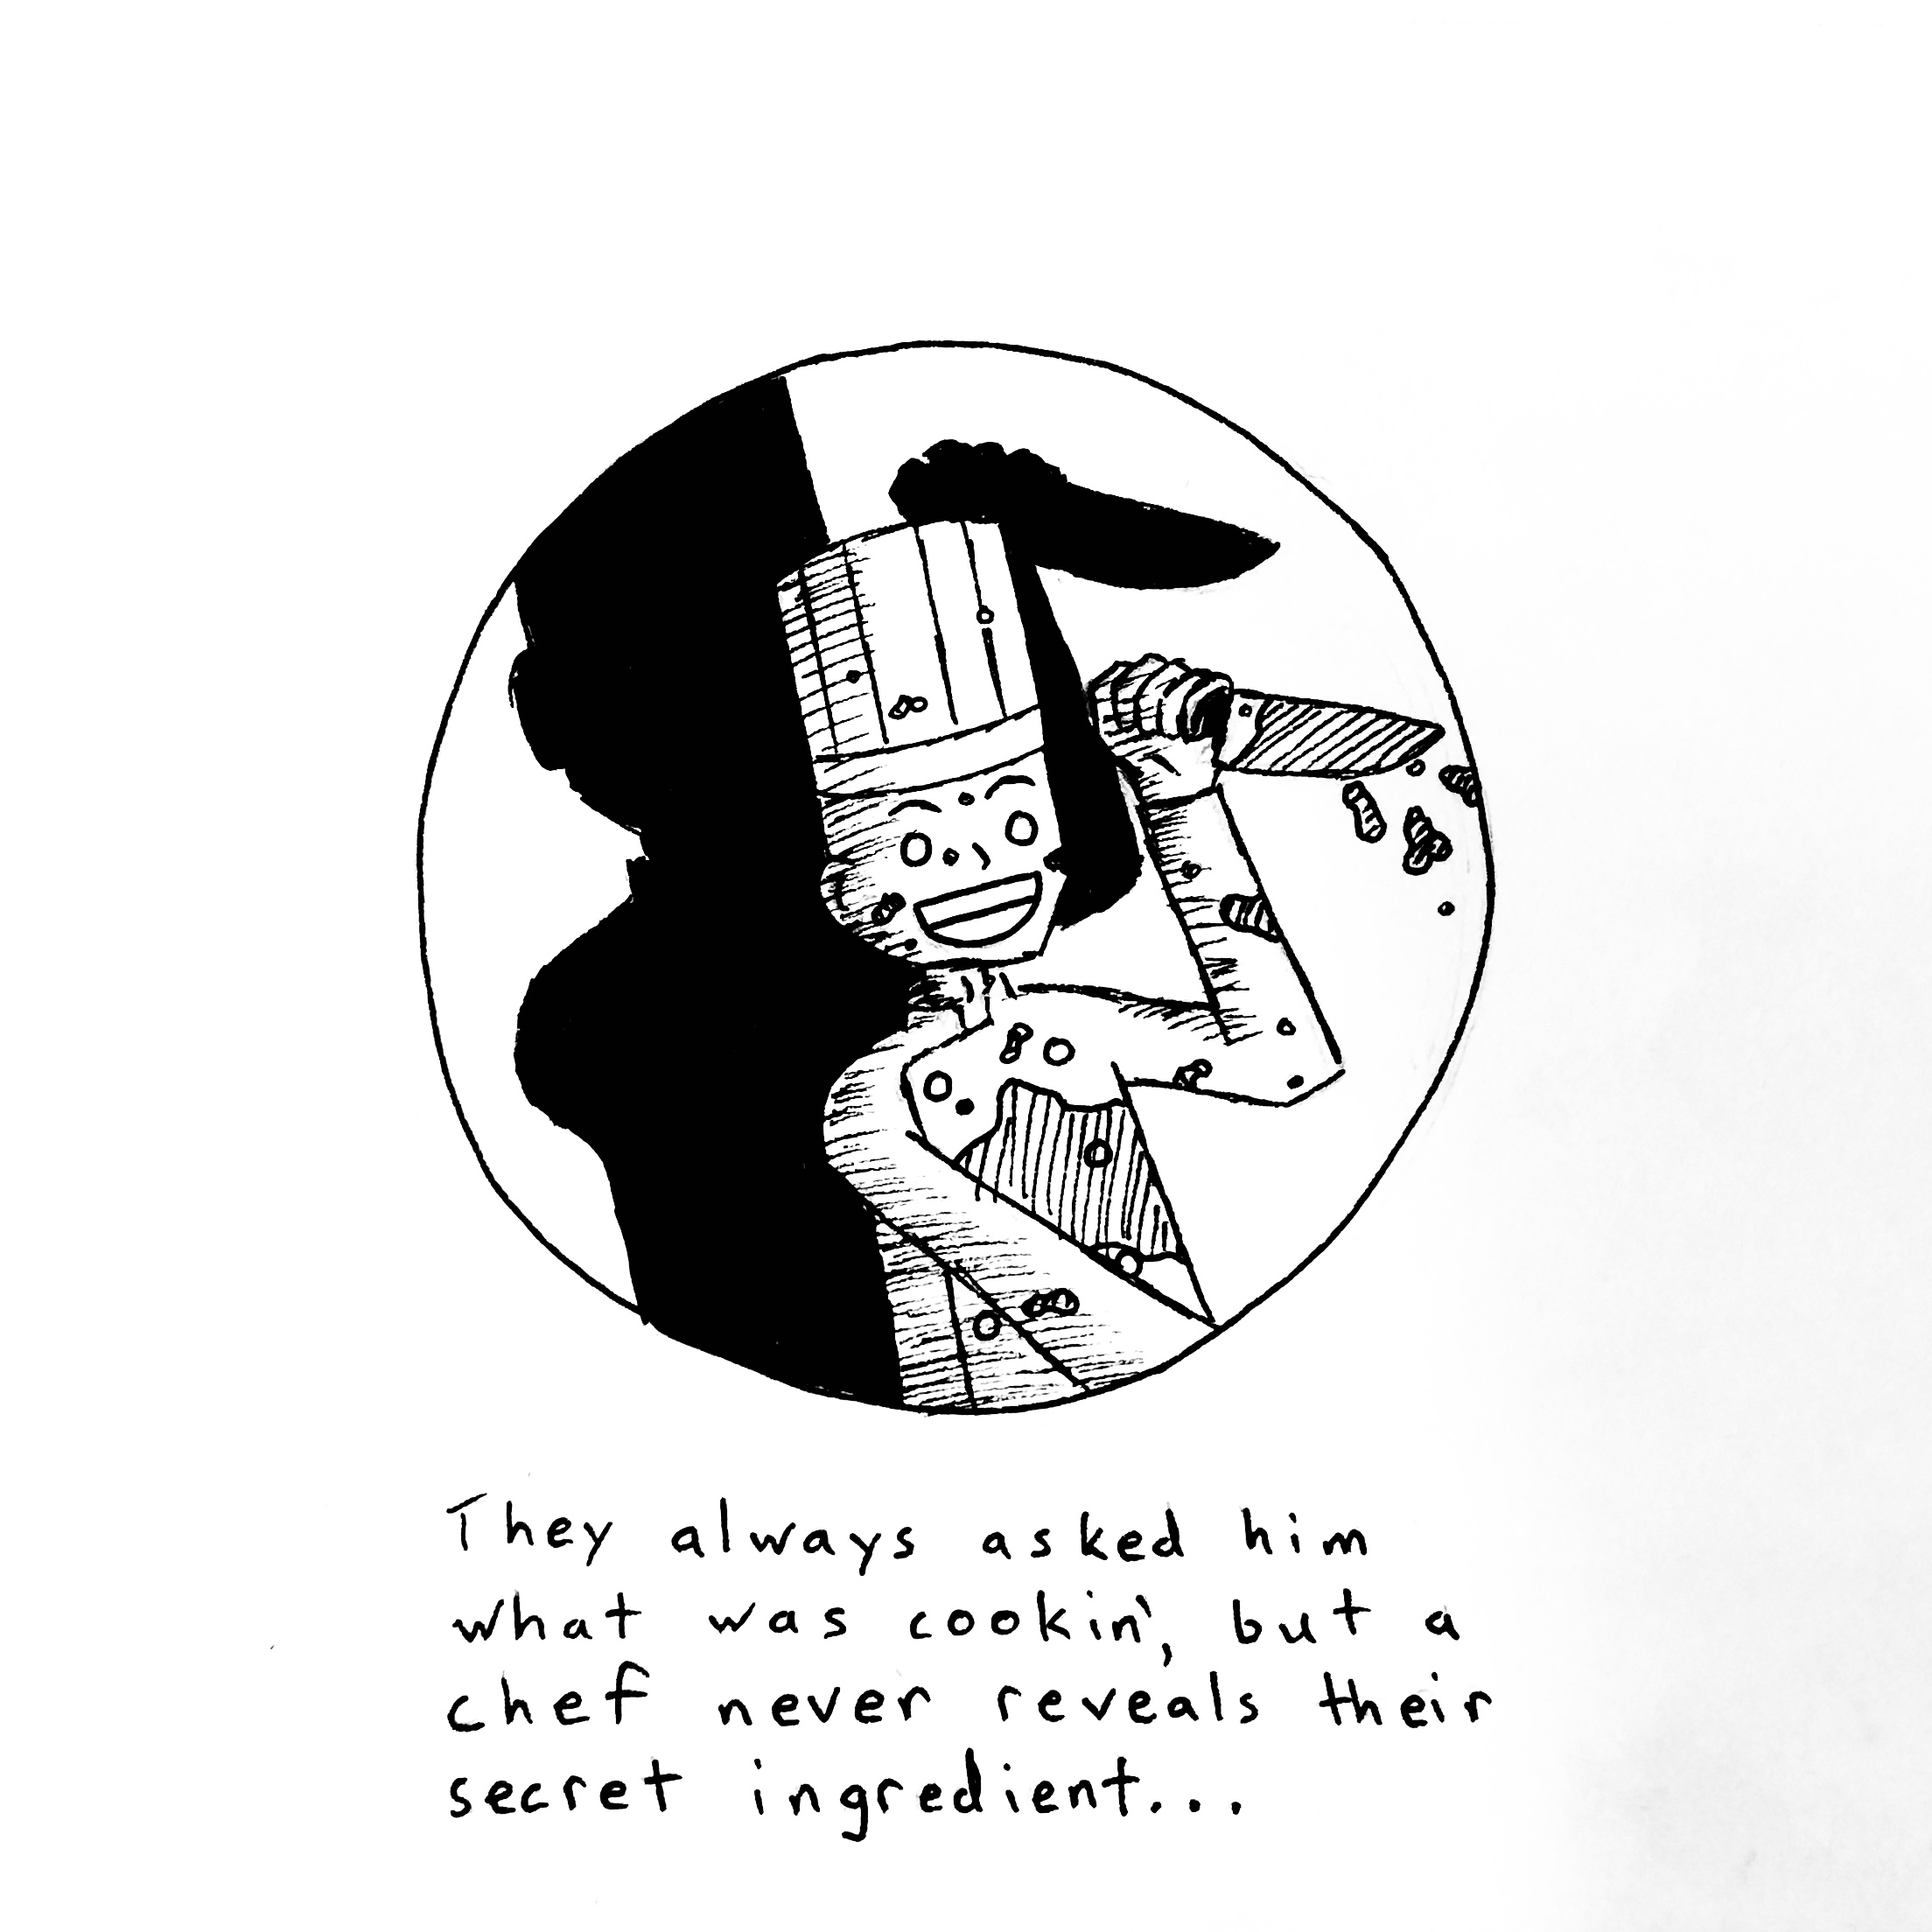 They always asked him
what was cookin', but a
chef never reveals their
secret ingredient...